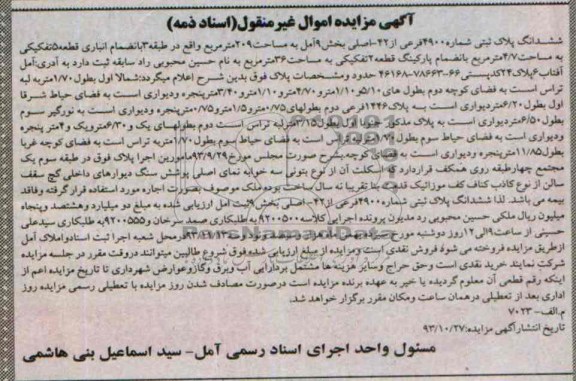 آگهی مزایده اموال غیرمنقول(اسناد ذمه)
ششدانگ پلاک ثبتی شماره۴۹۰۰فرعی از۴۲-اصلی بخش۹آمل به مساحت۲۰۹مترمربع واقع در طبقه۳بانضمام انباری قطعه۵تفکیکی
به مساحت۴/۷مترمربع بانضمام پارکینگ قطعه۲تفکیکی به مساحت۳۶مترمربع به نام حسین محبوبی راد سابقه ثبت دارد به آدرس:آمل
آفتاب۶پلاک۲۴کدپستی۶۶-۷۸۶۶۳-۴۶۱۶۸ حدود ومشخصات پلاک فوق بدین شرح اعلام میگردد:شمالا اول بطول۱/۷۰متربه لبه
تراس است به فضای کوچه دوم بطول های۵/۱۰و۱/۱۰مترو۴/۷۰مترو۱/۱۰مترو۳/۴۰مترپنجره ودیواری است به فضای حیاط شرقا
اول بطول۶/۲۰متردیواری است به پلاک۱۴۴۶فرعی دوم بطولهای۰/۷۵مترو۱/۵مترو۰/۷۵مترپنجره ودیواری است به نورگیر سوم
بطول۶/۵۰متردیواری است به پلاک مذکور جنوبا اول بطول۳/۱۵متربه تراس است دوم بطولهای یک و۶/۳۰مترویک و۴متر پنجره
ودیواری است به فضای حیاط سوم بطول۱/۷۰متربه تراس است به فضای حیاط سوم بطول۱/۷۰متربه تراس است به فضای کوچه غربا
بطول۱۱/۸۵مترپنجره ودیواری است به فضای کوچه بشرح صورت مجلس مورخ۹۳/۹/۲۹مامورین اجرا پلاک فوق در طبقه سوم یک
مجتمع چهارطبقه روی همکف قراردارد که اسکلت آن از نوع بتونی سه خوابه نمای اصلی پوشش سنگ دیوارهای داخلی گچ سقف
سالن از نوع کاذب کناف کف موزائیک قدمت بنا تقریبا نه سال ساخت بوده ملک موصوف بصورت اجاره مورد استفاده قرار گرفته وفاقد
بیمه می باشد. لذا ششدانگ پلاک ثبتی شماره ۴۹۰۰فرعی از۴۲- اصلی بخش ۹ثبت آمل ارزیابی شده به مبلغ دو میلیارد وهشتصد وپنجاه
میلیون ریال ملکی حسین محبوبی رد مدیون پرونده اجرایی کلاسه ۹۲۰۰۵۰۰به طلبکاری صمد سرخان و۹۲۰۰۵۵۵به طلبکاری سیدعلی
حسینی از ساعت۹الی۱۲روز دوشنبه مورخ محل شعبه اجرا ثبت اسنادواملاک آمل
ازطریق مزایده فروخته می شود فروش نقدی است ومزایده از مبلغ ارزیابی شده فوق شروع طالبین میتوانند دروقت مقرر در جلسه مزایده
شرکت نمایند خرید نقدی است وحق حراج وسایر هزینه ها مشتمل بردارایی آب وبرق وگازوعوارض شهرداری تا تاریخ مزایده اعم از
اینکه رقم قطعی آن معلوم گردیده یا خیر به عهده برنده مزایده است درصورت مصادف شدن روز مزایده با تعطیلی رسمی مزایده روز
اداری بعد از تعطیلی درهمان ساعت ومکان مقرر برگزار خواهد شد.
م.الف- ۷۰۲۳
تاریخ انتشارآگهی مزایده:۹۳/۱۰/۲۷
مسئول واحد اجرای اسناد رسمی آمل- سید اسماعیل بنی هاشمی